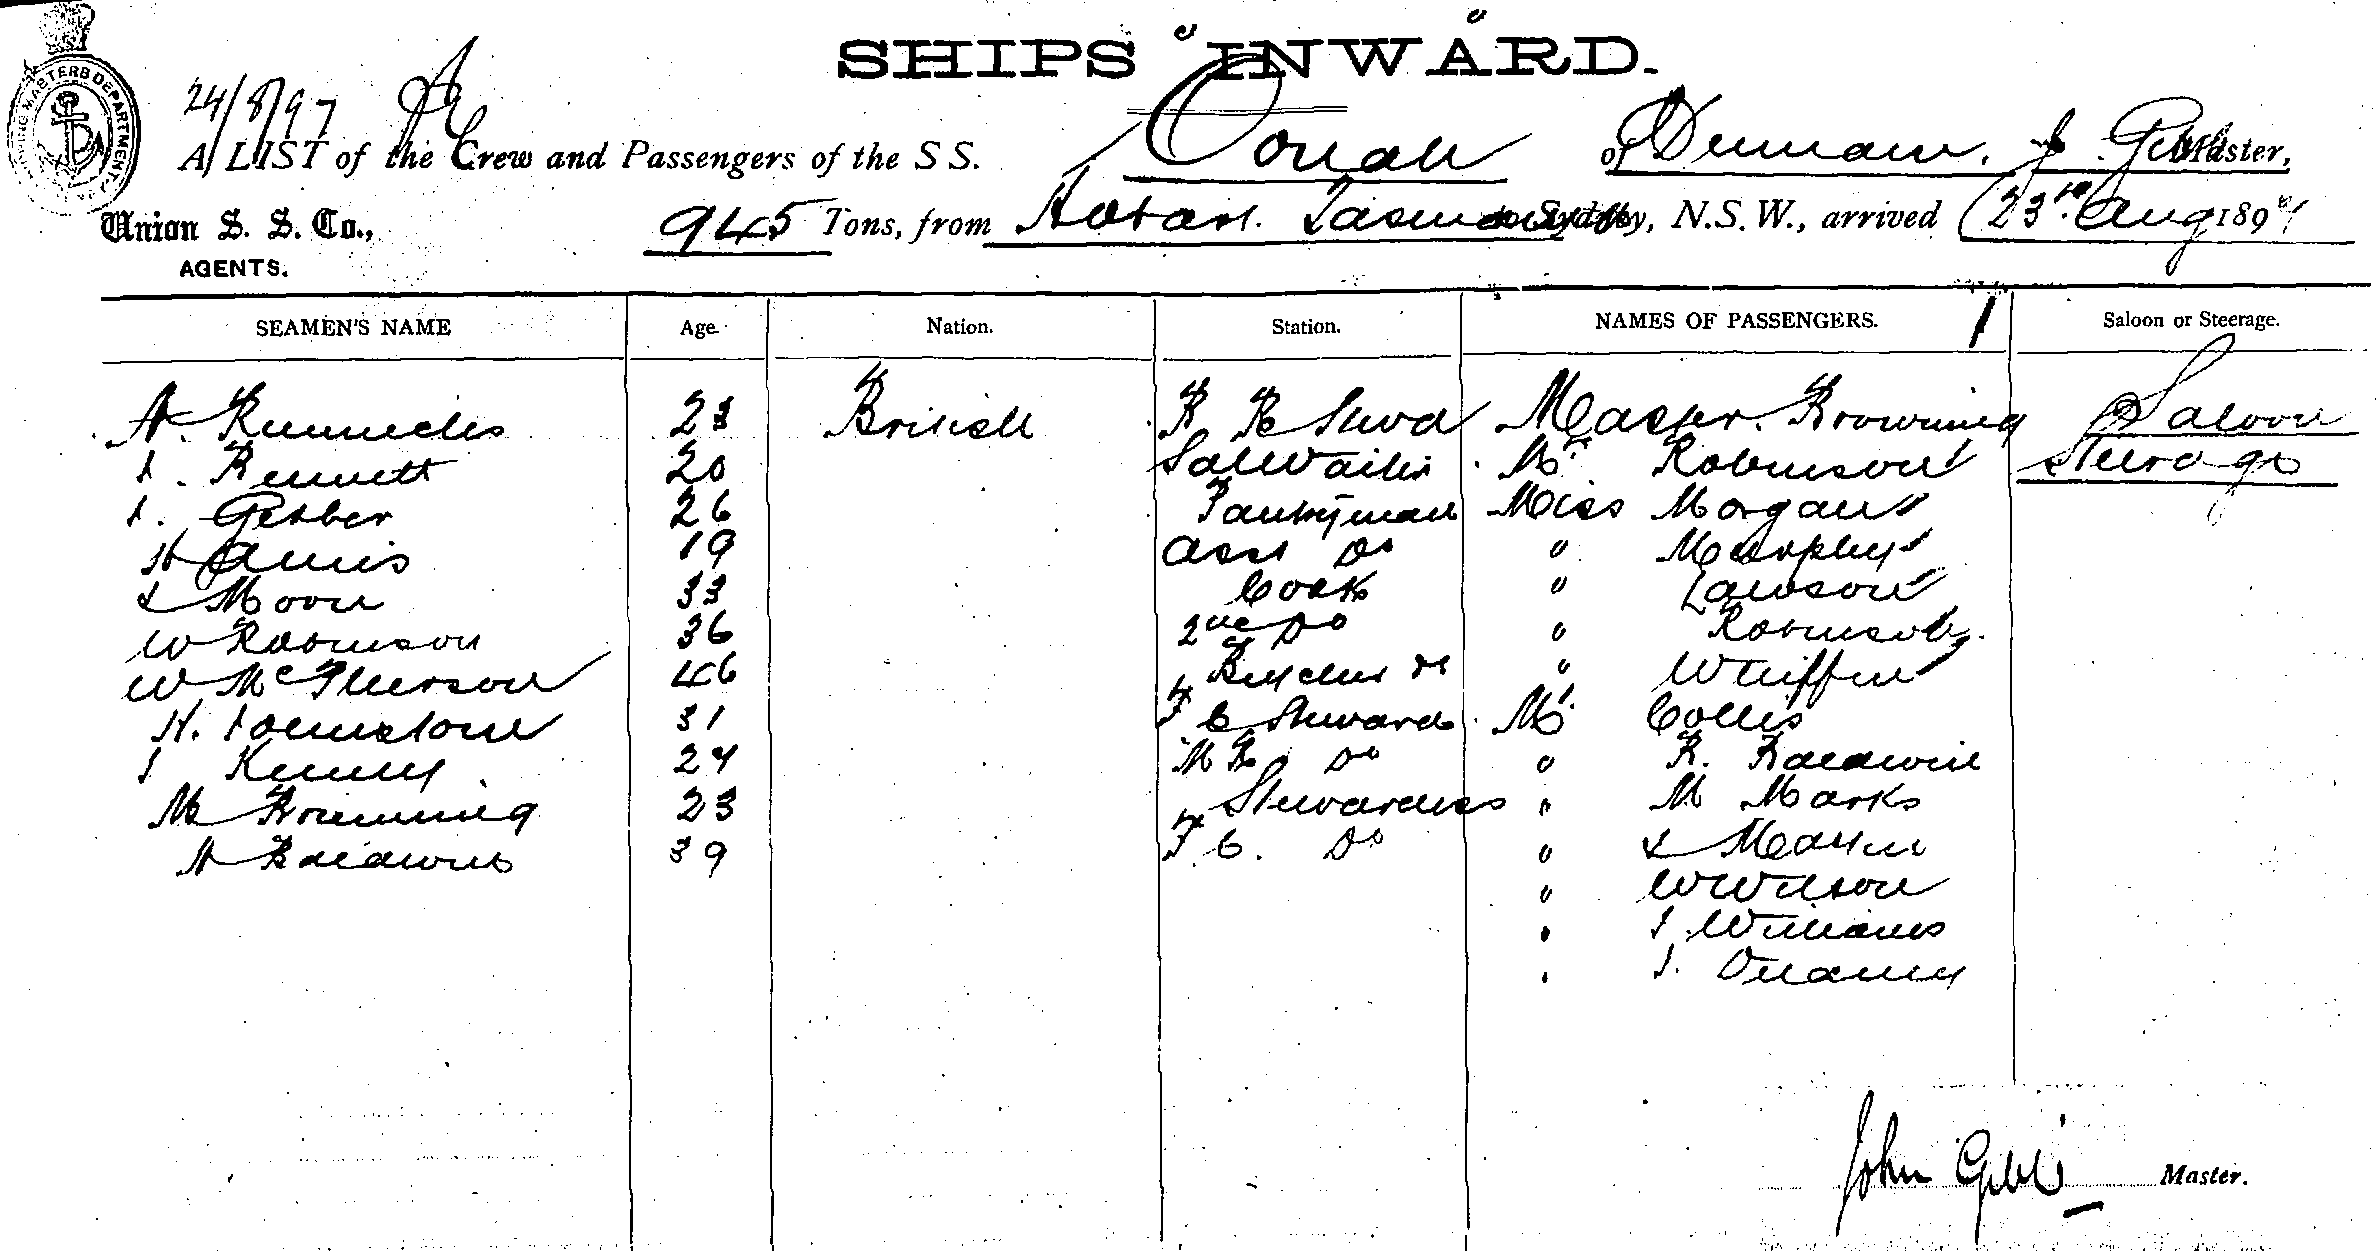 SHIPS INWARD.
SHIPPING MASTERS DEPARTMENT
24/8/97
A LIST of the Crew and Passengers of the S S. Oonah of Dunedin. J. Gibb Master,
Union S. S. Co.,
AGENTS.
945 Tons, from Hobart. Tasmania to Sydney, N.S.W., arrived 23rd Aug 1897
SEAMEN'S NAME Age Nation. Station. NAMES OF PASSENGERS. Saloon or Steerage.
23 British Master. Browning Saloon
J. Bennett 20 Sal Waiter Mr Robinson Steerage
J. Gerber 26 Pantryman Miss Morgan
H Annis 19 Asst Do " Murphy
Moore 33 Cook " Lawson
W Robinson 36 2nd Do " Robinson
W McPherson 46 Butcher " Whiffin
H. Johnstone 31 F C Steward Mr Colles
J Kenny 24 Do " R. Baldwin
M Browning 23 Stewardess " M Marks
A Baldwin 39 F. C. Do " Martin
" W Wilson
" J Williams
" J. Delaney
John Gibb Master.